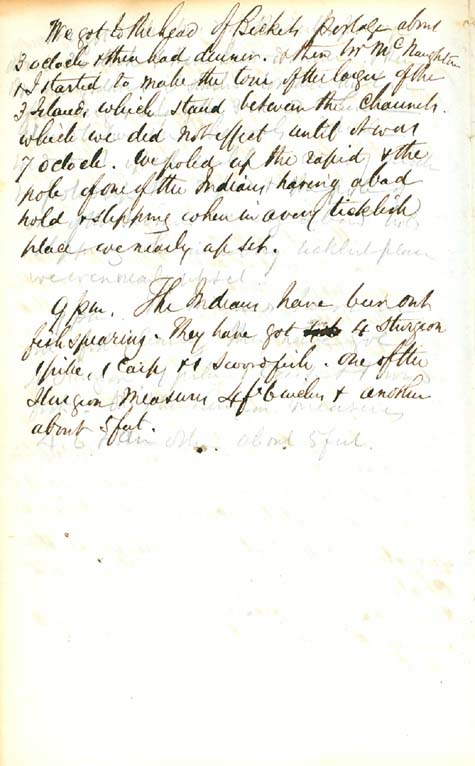 We got to the head of Bickets portage about
3 oclock & then had dinner. & then Mr McNaughton
& I started to make the tour of the larger of the
3 Islands which stand between the Channels.
which we did not effect until it was
7 oclock. We poled up the rapid & the
pole of one of the Indians having a bad
hold & slipping when in a very ticklish
place we nearly upset.
9 pm. The Indians have been out
fish spearing. They have got 4 Sturgeon
1 pike, 1 Carp & 1 Swordfish. one of the
Sturgeon measures 4ft 6 inches & another
about 5 feet.